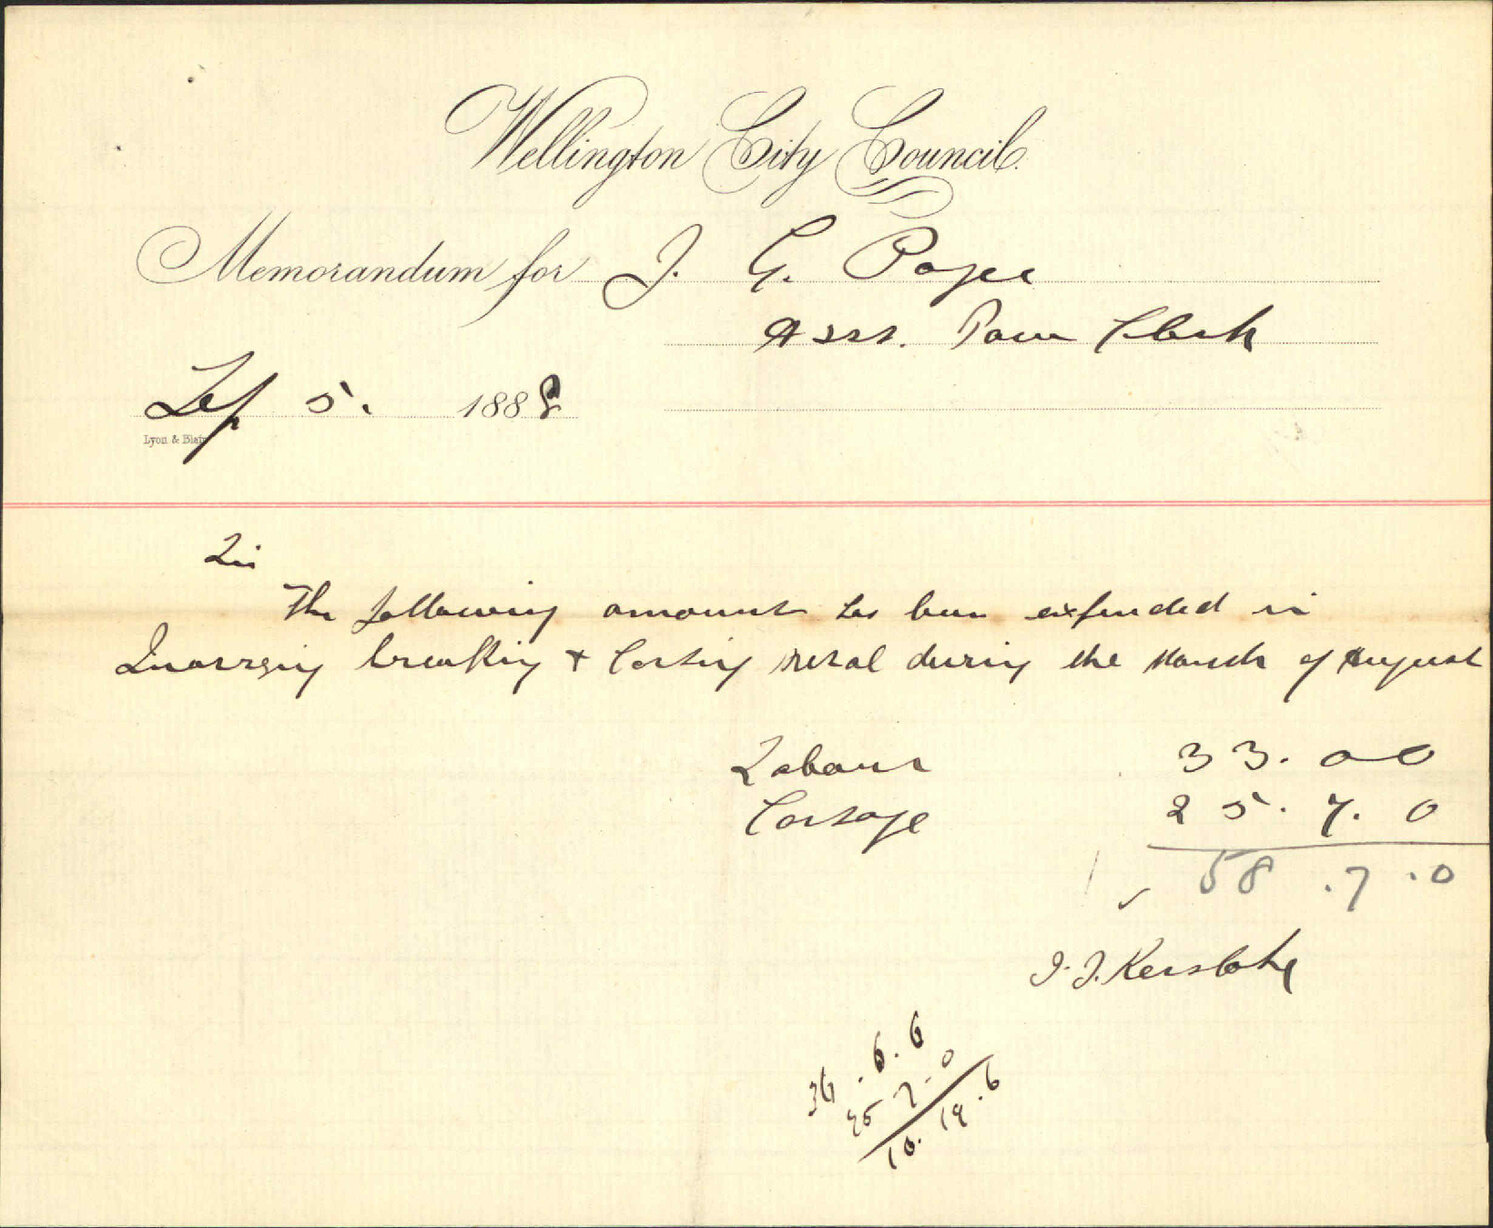 Wellington City Council.
Memorandum for J. G. Page
Asst. Town Clerk
Sep 5. 1888
Lyon & Blair
Sir
The following amount has been expended in
Quarrying breaking & Carting metal during the Month of August
Labour 33. 0 0
Cartage 25. 7. 0
58 . 7 . 0
J. J. Kerslake
36 . 6 . 6
25 7 . 0
10. 19 . 6